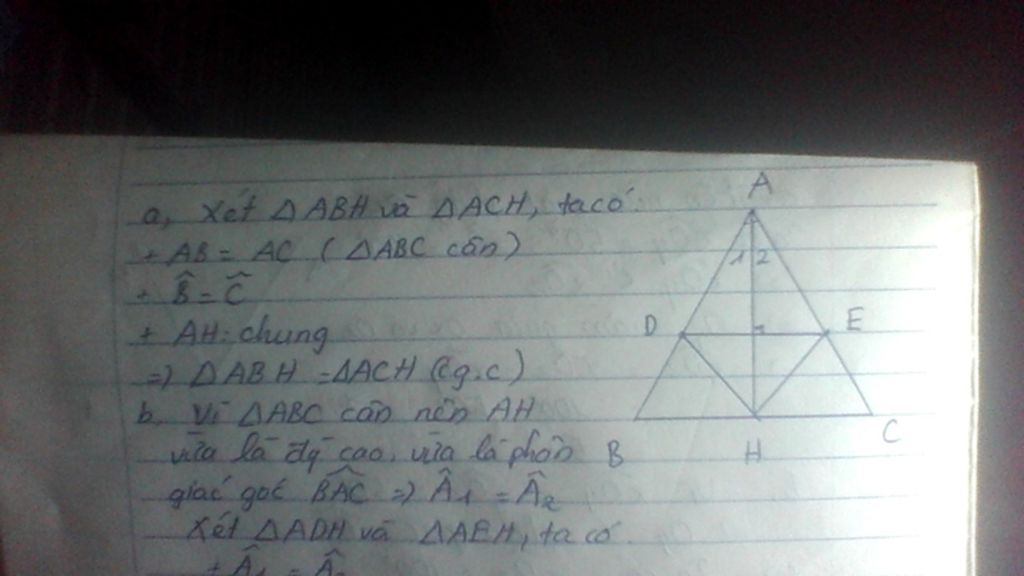 a, Xét ΔABH và ΔACH, ta có
+ AB = AC (ΔABC cân)
+ B̂ = Ĉ
+ AH: chung
=> ΔABH = ΔACH (c.g.c)
b, Vì ΔABC cân nên AH
vừa là đg cao, vừa là phân
giác góc BAC => Â1 = Â2
Xét ΔADH và ΔAEH, ta có
+ Â1 = Â2
A
1 2
D E
B H C